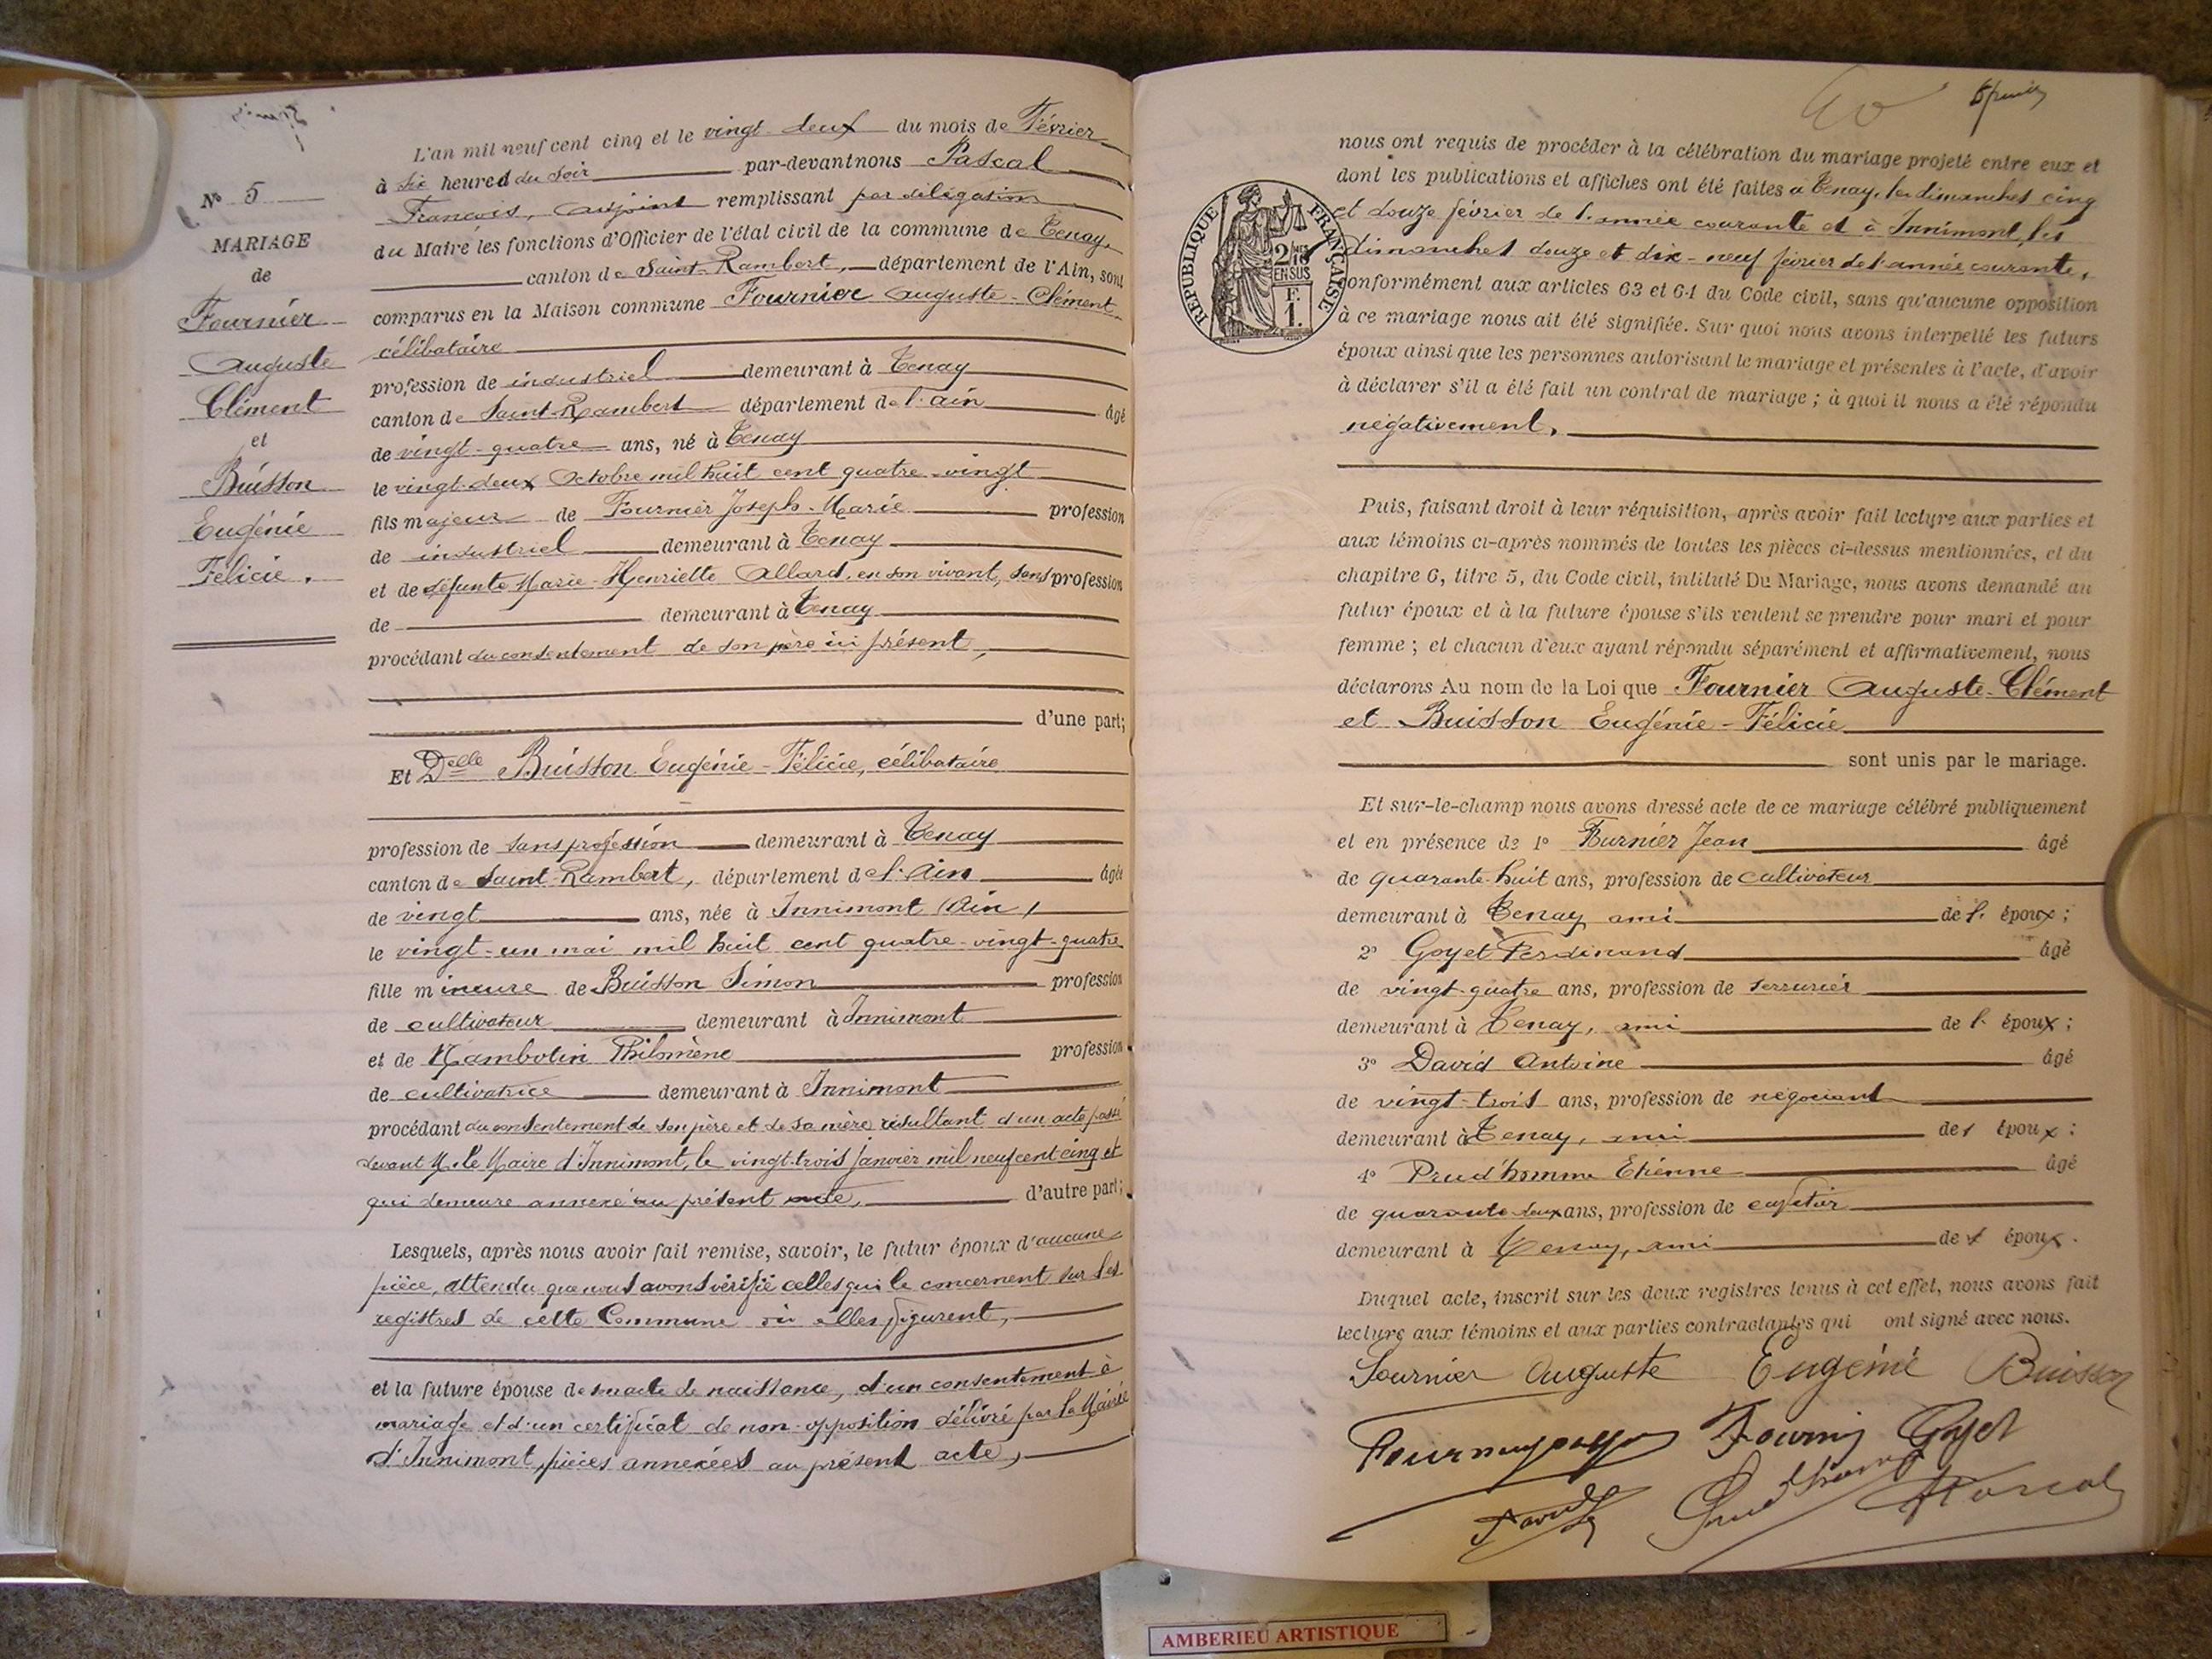 N° 5
MARIAGE
de
Fournier
Auguste
Clément
et
Buisson
Eugénie
Félicie.
L'an mil neuf cent cinq et le vingt-deux du mois de Février
à six heures du soir par-devant nous Pascal
François, adjoint remplissant par délégation
du Maire les fonctions d'Officier de l'état civil de la commune de Tenay,
canton de Saint-Rambert, département de l'Ain, sont
comparus en la Maison commune Fournier Auguste-Clément
célibataire
profession de industriel demeurant à Tenay
canton de Saint-Rambert département de l'ain âgé
de vingt-quatre ans, né à Tenay
le vingt-deux Octobre mil huit cent quatre-vingt
fils majeur de Fournier Joseph-Marie profession
de industriel demeurant à Tenay
et de défunte Marie-Henriette Allard, en son vivant, sans profession
de demeurant à Tenay
procédant du consentement de son père ici présent,
d'une part;
Et Delle Buisson Eugénie-Félicie, célibataire
profession de sans profession demeurant à Tenay
canton de Saint-Rambert, département de l'Ain âgée
de vingt ans, née à Innimont (Ain)
le vingt-un mai mil huit cent quatre-vingt-quatre
fille mineure de Buisson Simon profession
de cultivateur demeurant à Innimont
et de Mambolin Philomène profession
de cultivatrice demeurant à Innimont
procédant du consentement de son père et de sa mère résultant d'un acte passé
devant M. le Maire d'Innimont, le vingt-trois janvier mil neuf cent cinq et
qui demeure annexé au présent acte, d'autre part;
Lesquels, après nous avoir fait remise, savoir, le futur époux d'aucune
pièce, attendu que nous avons vérifié celles qui le concernent sur les
registres de cette Commune où elles figurent,
et la future épouse de son acte de naissance, d'un consentement à
mariage et d'un certificat de non-opposition délivré par la Mairie
d'Innimont, pièces annexées au présent acte,
40
nous ont requis de procéder à la célébration du mariage projeté entre eux et
dont les publications et affiches ont été faites à Tenay, les dimanches cinq
et douze février de l'année courante et à Innimont, les
dimanches douze et dix-neuf février de l'année courante,
conformément aux articles 63 et 64 du Code civil, sans qu'aucune opposition
à ce mariage nous ait été signifiée. Sur quoi nous avons interpellé les futurs
époux ainsi que les personnes autorisant le mariage et présentes à l'acte, d'avoir
à déclarer s'il a été fait un contrat de mariage; à quoi il nous a été répondu
négativement.
REPUBLIQUE FRANÇAISE
2/10 EN SUS
F.
1.
Puis, faisant droit à leur réquisition, après avoir fait lecture aux parties et
aux témoins ci-après nommés de toutes les pièces ci-dessus mentionnées, et du
chapitre 6, titre 5, du Code civil, intitulé Du Mariage, nous avons demandé au
futur époux et à la future épouse s'ils veulent se prendre pour mari et pour
femme; et chacun d'eux ayant répondu séparément et affirmativement, nous
déclarons Au nom de la Loi que Fournier Auguste-Clément
et Buisson Eugénie-Félicie
sont unis par le mariage.
Et sur-le-champ nous avons dressé acte de ce mariage célébré publiquement
et en présence de 1° Fournier Jean âgé
de quarante-huit ans, profession de cultivateur
demeurant à Tenay, ami de l' époux;
2° Goyet Ferdinand âgé
de vingt-quatre ans, profession de serrurier
demeurant à Tenay, ami de l' époux;
3° David Antoine âgé
de vingt-trois ans, profession de négociant
demeurant à Tenay, ami des époux;
4° Prud'homme Etienne âgé
de quarante-deux ans, profession de cafetier
demeurant à Tenay, ami de l' époux.
Duquel acte, inscrit sur les deux registres tenus à cet effet, nous avons fait
lecture aux témoins et aux parties contractantes qui ont signé avec nous.
Fournier Auguste Eugénie Buisson
Fournier Goyet
David Prud'homme Pascal
AMBERIEU ARTISTIQUE